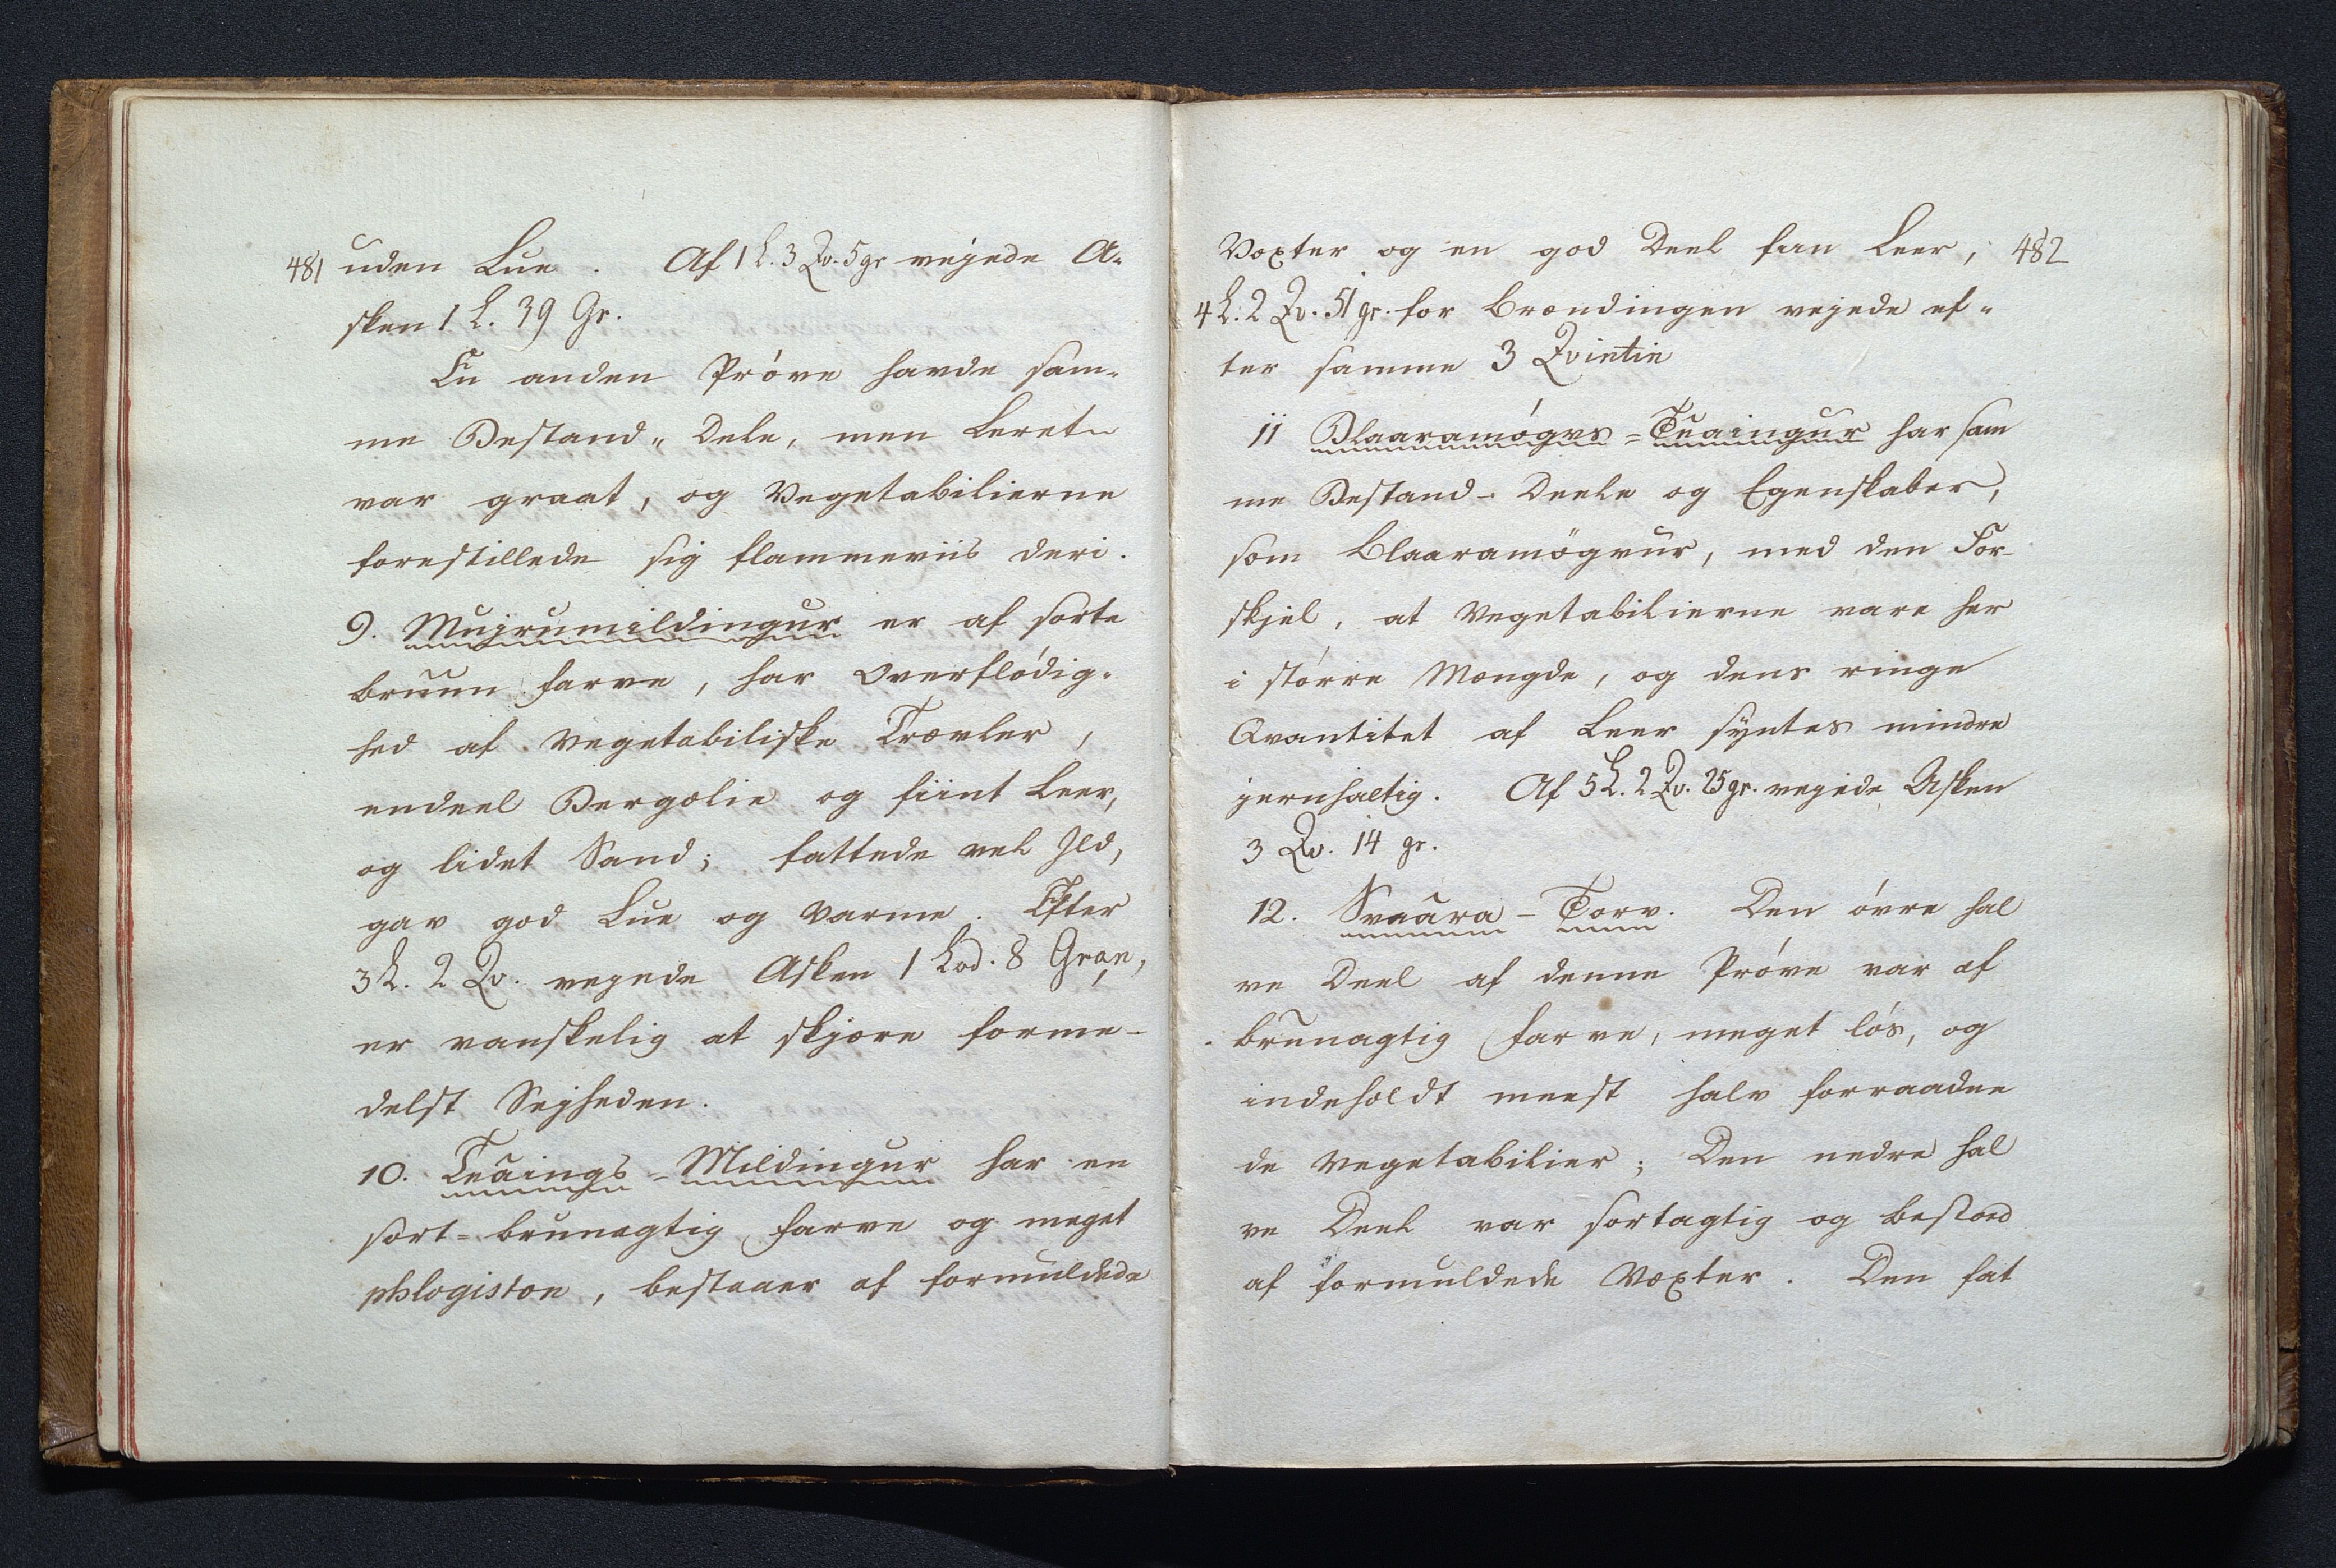 481 uden Lue. Af 1 L. 3 Qv. 5 gr vejede A-
sken 1 L. 39 Gr.
En anden Prøve havde sam-
me Bestand-Dele, men Leret
var graat, og Vegetabilierne
forestillede sig flammeviis deri.
9. Mujrumildingur er af sorte
bruun farve, har Overflødig-
hed af vegetabiliske Trævler,
endeel Bergolie og fiint Leer,
og lidet Sand; fattede vel Ild,
gav god Lue og Varme. Efter
3 L. 2 Qv. vejede Asken 1 Lod. 8 Gran,
er vanskelig at skjære forme-
delst Sejheden.
10. Teaings-Mildingur har en
sort-brunagtig farve og meget
phlogiston, bestaaer af formuldede
Væxter og en god Deel fiin Leer, 482
4 L. 2 Qv. 51 gr. for Brændingen vejede ef-
ter samme 3 Qvintin
11 Blaaramógvs-Teaingur har sam
me Bestand-Deele og Egenskaber,
som Blaaramögvur, med den For-
skjel, at Vegetabilierne vare her
i større Mængde, og dens ringe
Qvantitet af Leer syntes mindre
jernhaltig. Af 5 L. 2 Qv. 25 gr. vejede Asken
3 Qv. 14 gr.
12. Svaūra-Torv. Den óvre hal
ve Deel af denne Prøve var af
brunagtig farve, meget løs, og
indeholdt meest halv forraadne
de Vegetabilier; Den nedre hal
ve Deel var sortagtig og bestod
af formuldede Væxter. Den fat